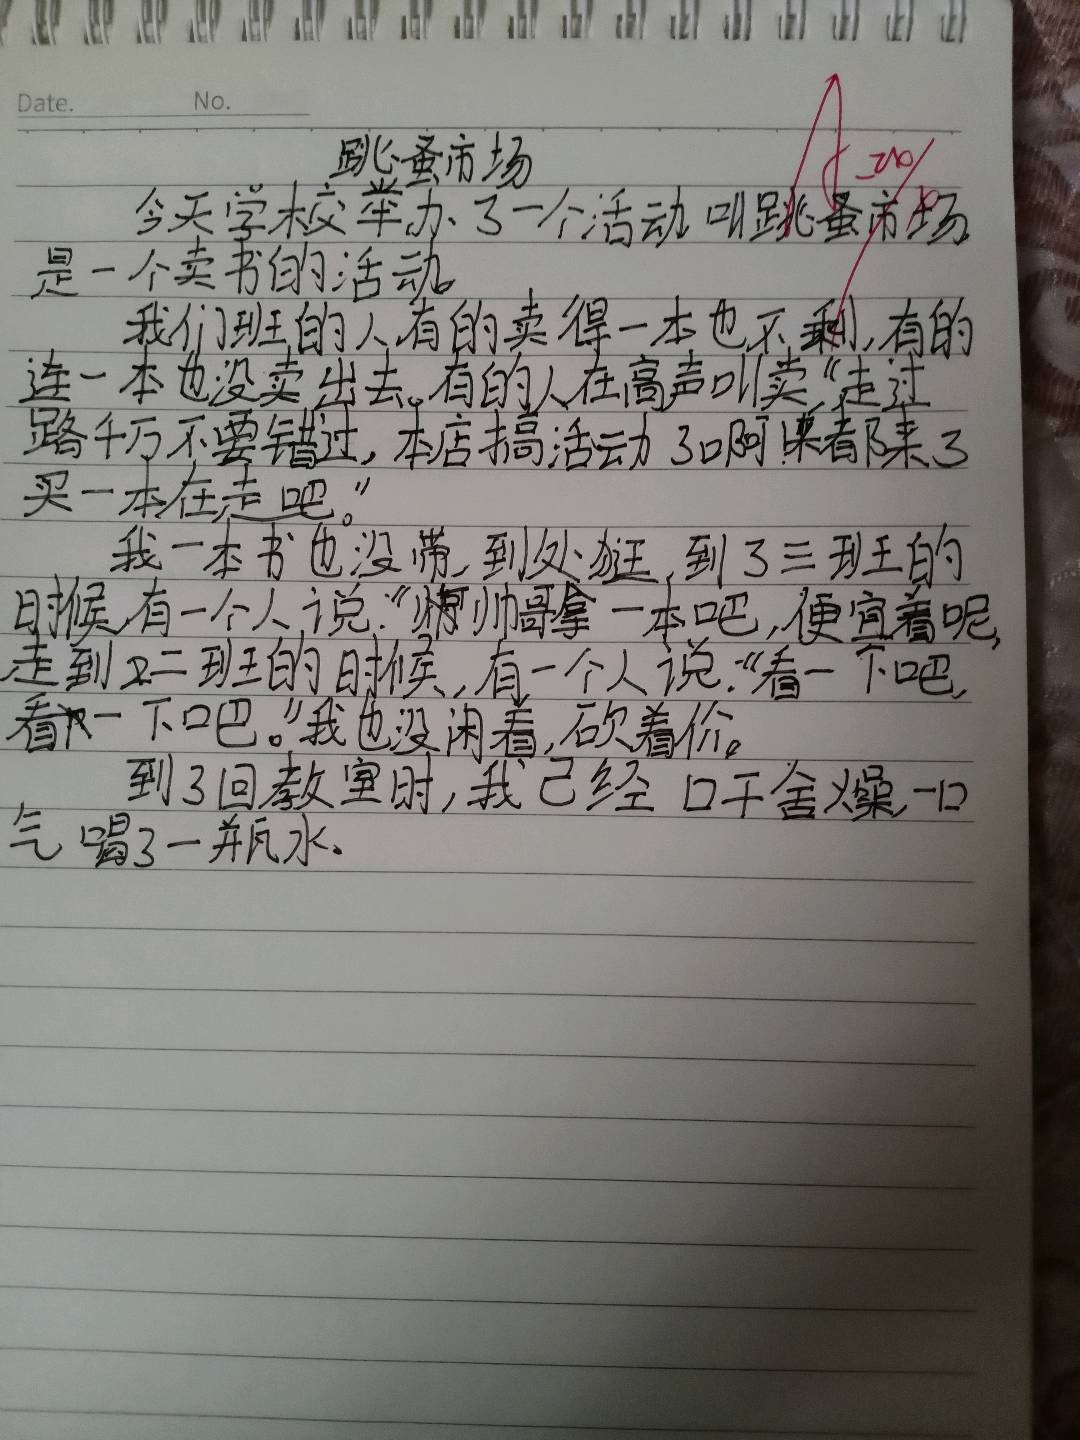 Date. No.
跳蚤市场
今天学校举办了一个活动叫跳蚤市场
是一个卖书的活动。
我们班的人有的卖得一本也不剩,有的
连一本也没卖出去。有的人在高声叫卖,“走过
路千万不要错过,本店搞活动了啊来都来了
买一本在走吧。”
我一本书也没带,到处逛,到了三班的
时候,有一个人说:“帅哥拿一本吧,便宜着呢,
走到二班的时候,有一个人说:“看一下吧,
看一下吧。”我也没闲着,砍着价。
到了回教室时,我己经口干舍燥,一口
气喝了一瓶水.